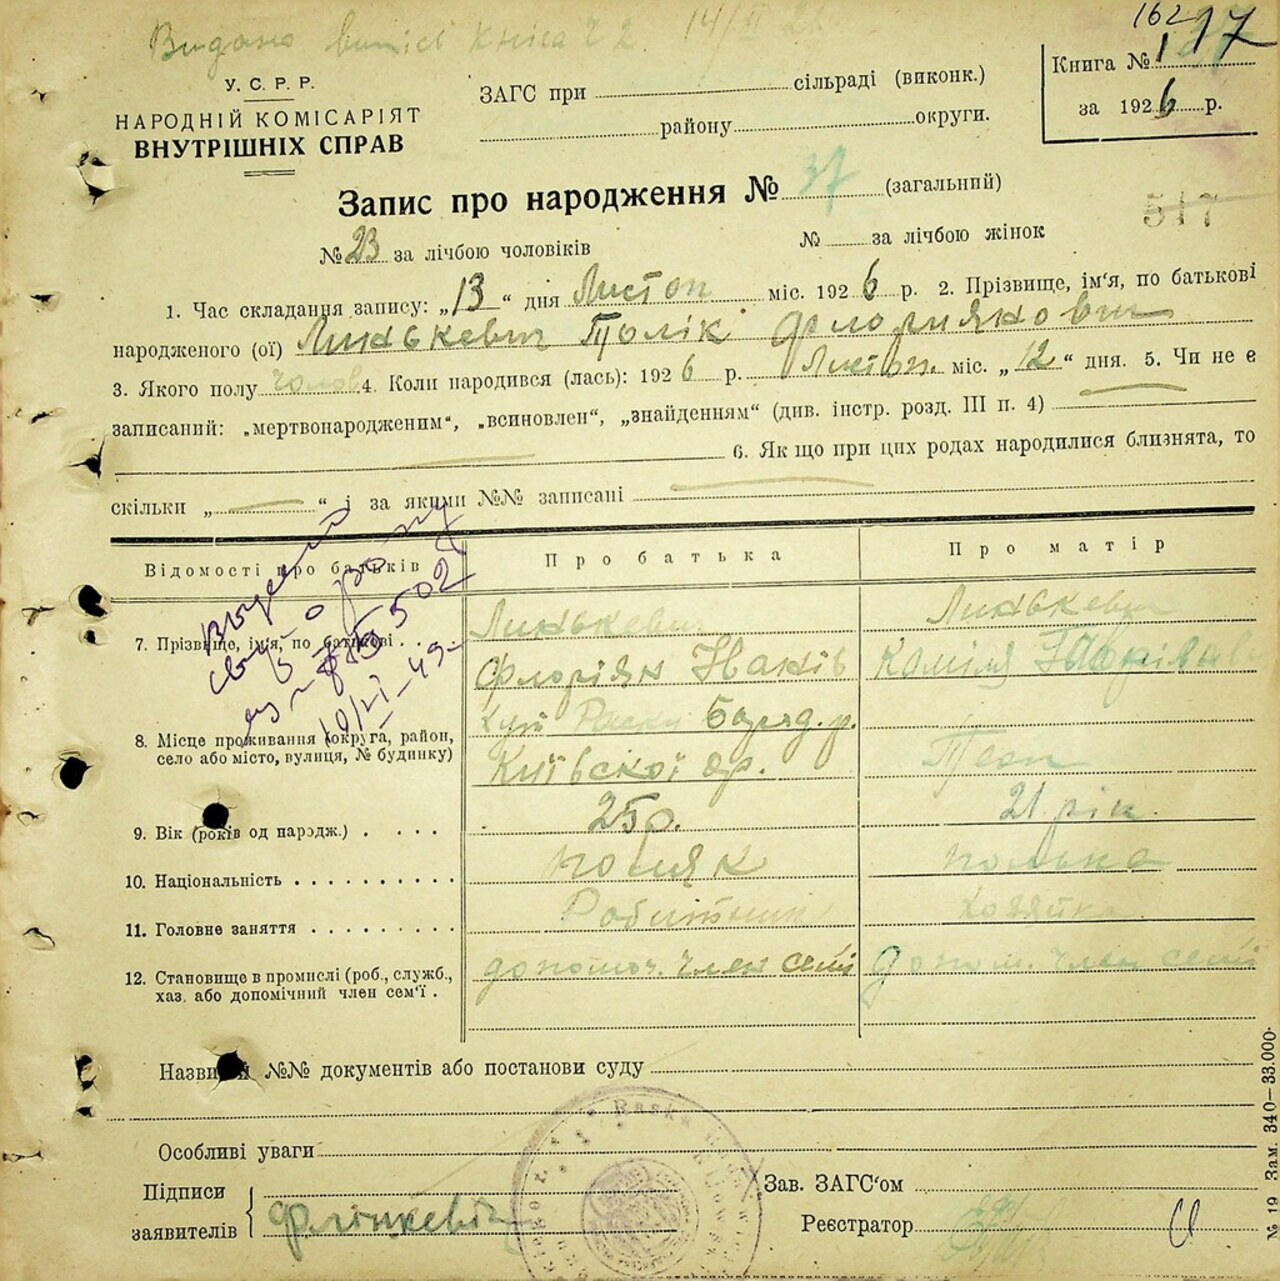 Видано випісь Книга Ч 2. 14/
162
117
У. С. Р. Р.
НАРОДНІЙ КОМІСАРІЯТ
ВНУТРІШНІХ СПРАВ
ЗАГС при сільраді (виконк.)
району округи.
Книга № 1
за 1926 р.
Запис про народження № 37 (загальний)
517
№ 23 за лічбою чоловіків № за лічбою жінок
1. Час складання запису: „13“ дня Листоп міс. 1926 р. 2. Прізвище, ім'я, по батькові
народженого (ої) Линькевич Толікі Флориянович
3. Якого полу чолов 4. Коли народився (лась): 1926 р. Листоп. міс. „12“ дня. 5. Чи не є
записаний: „мертвонародженим“, „всиновлен“, „знайденням“ (див. інстр. розд. III п. 4)
6. Як що при цих родах народилися близнята, то
скільки „ “ і за якими №№ записані
Відомості про батьків Про батька Про матір
7. Прізвище, ім'я, по батькові Линькевич Линькевич
Флоріян Іванів Каміля
8. Місце проживання (округа, район, Баряд. р.
село або місто, вулиця, № будинку) Київської окр. Теж
9. Вік (років од народж.) 25 р. 21 рік.
10. Національність поляк полька
11. Головне заняття Робітник Хозяйка
12. Становище в промислі (роб., служб., допомоч. член семї допом. член семї
хаз. або допомічний член сем'ї.
о рожд
502
10/VI-49
Назви й №№ документів або постанови суду
Особливі уваги
Підписи
заявителів Флінкевич
Зав. ЗАГС'ом
Реєстратор
№ 19 Зам. 340—33.000.